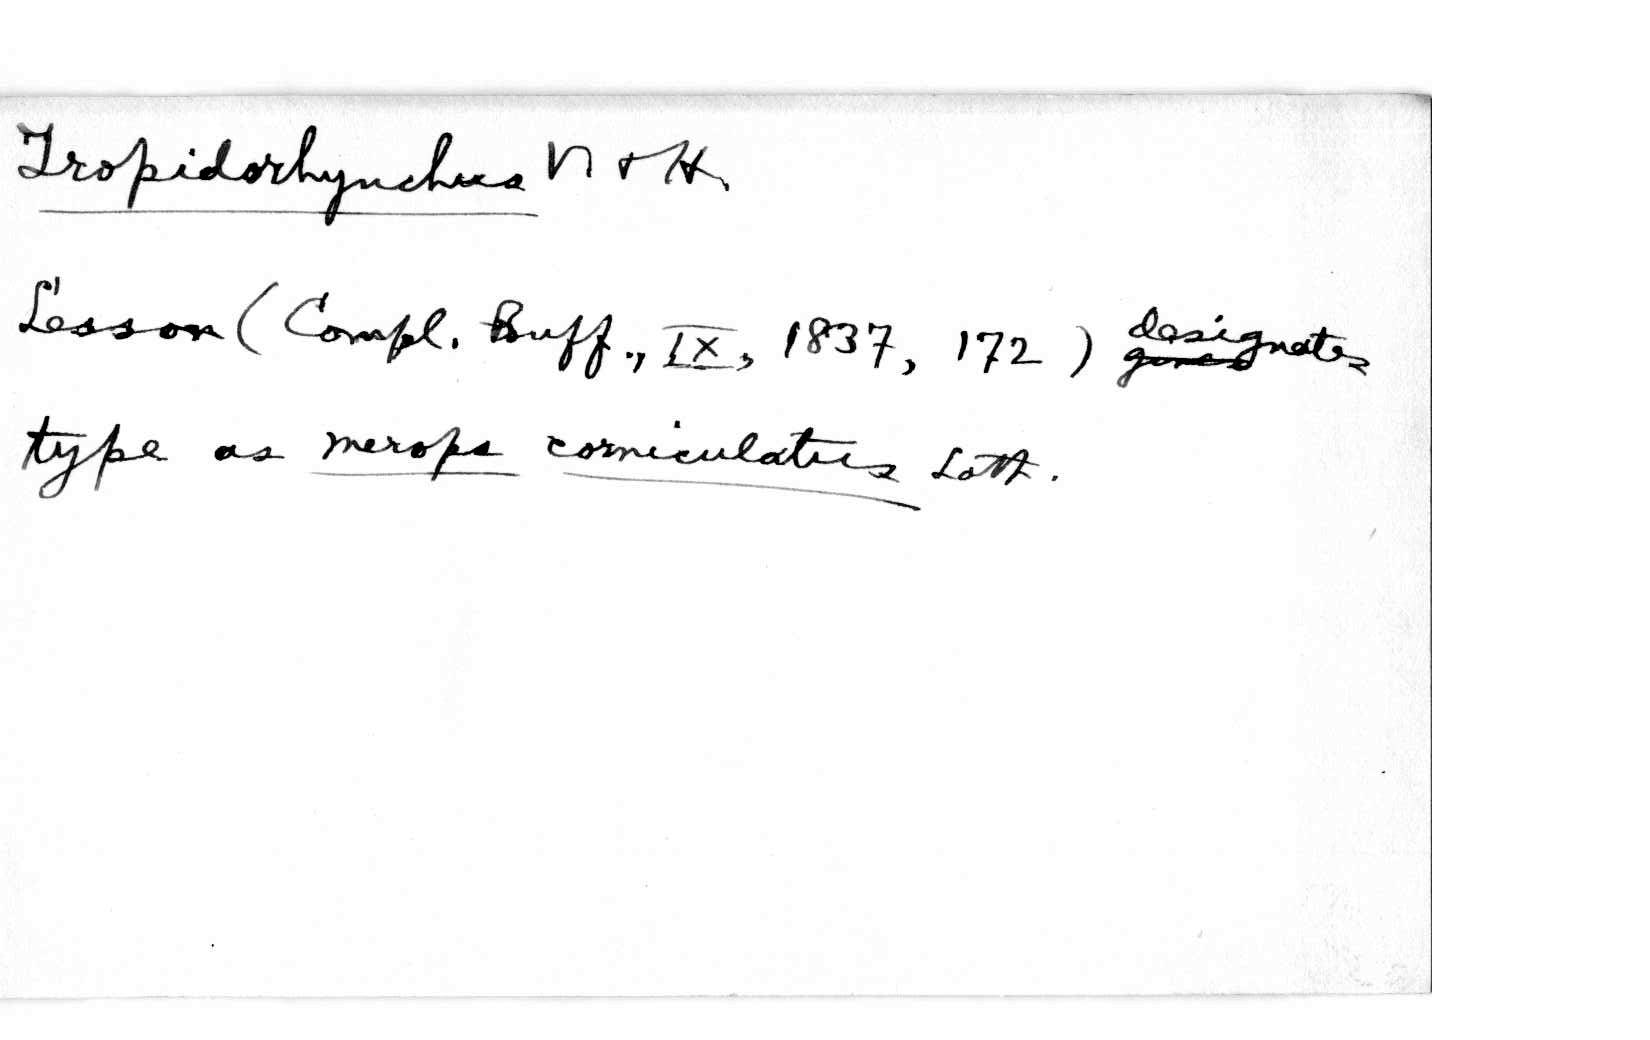 Tropidorhynchus V & H.
Lesson (Compl. Buff., IX, 1837, 172) designates
type as Merops corniculatus Lath.